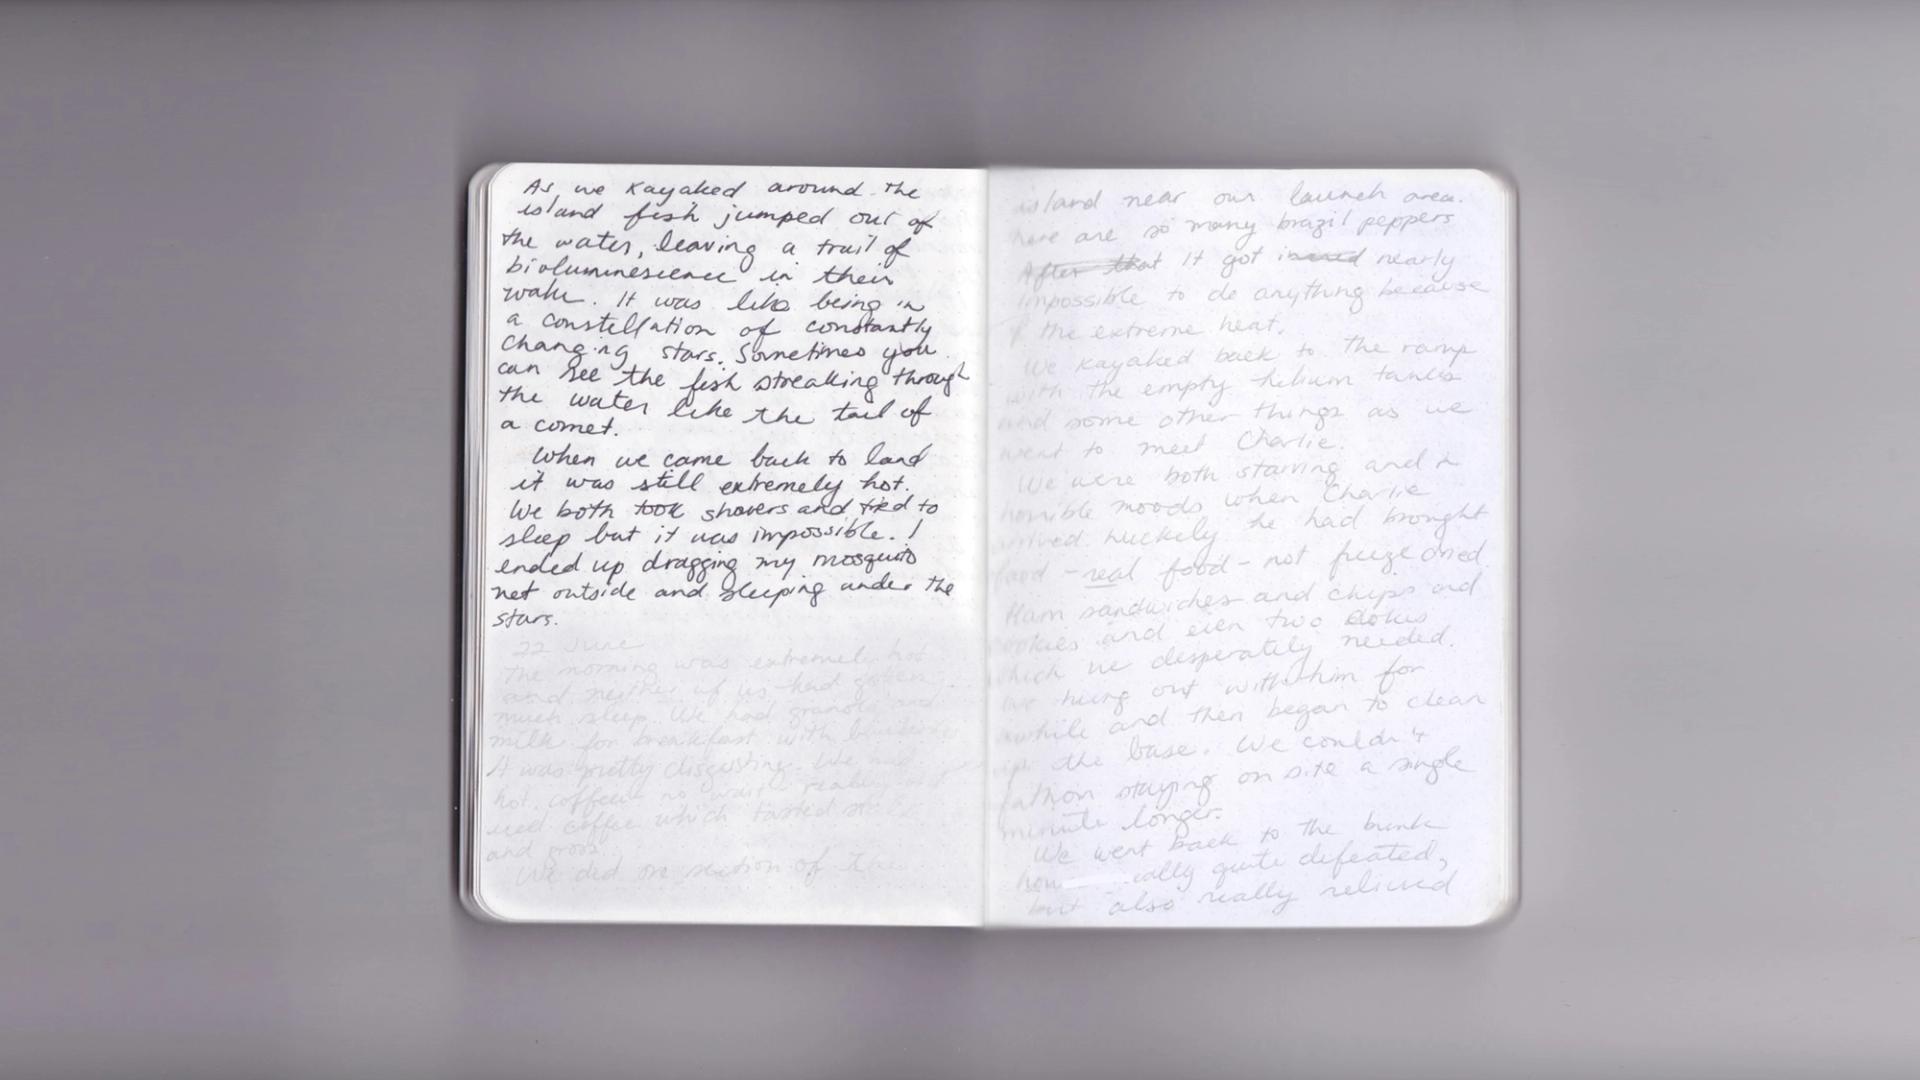 As we Kayaked around the
island fish jumped out of
the water, leaving a trail of
bioluminescence in their
wake. It was like being in
a constellation of constantly
changing stars. Sometimes you
can see the fish streaking through
the water like the tail of
a comet.
When we came back to land
it was still extremely hot.
We both took showers and tried to
sleep but it was impossible. I
ended up dragging my mosquito
net outside and sleeping under the
stars.
22 June
The morning was extremely hot
and neither of us had gotten
much sleep. We had granola and
milk for breakfast with
It was pretty disgusting. We had
hot coffee no wait really
iced coffee which tasted
and gross.
We did one section of the
island near our launch area.
here are so many brazil peppers
After that It got nearly
impossible to do anything because
of the extreme heat.
We Kayaked back to the ramp
with the empty helium tanks
and some other things as we
went to meet Charlie.
We were both starving and in
horrible moods when Charlie
arrived. Luckely he had brought
food - real food - not freeze dried.
Ham sandwiches and chips and
cookies and even two
which we desperately needed.
We hung out with him for
awhile and then began to clean
up the base. We couldn't
fathom staying on site a single
minute longer.
We went back to the bunk
quite defeated,
but also really relieved